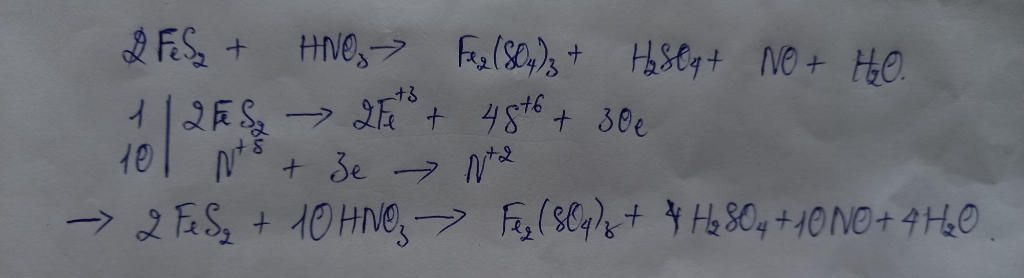 2FeS₂ + HNO₃ → Fe₂(SO₄)₃ + H₂SO₄ + NO + H₂O.
1 | 2FeS₂ → 2Fe⁺³ + 4S⁺⁶ + 30e
10 | N⁺⁵ + 3e → N⁺²
→ 2FeS₂ + 10HNO₃ → Fe₂(SO₄)₃ + H₂SO₄ + 10NO + 4H₂O.